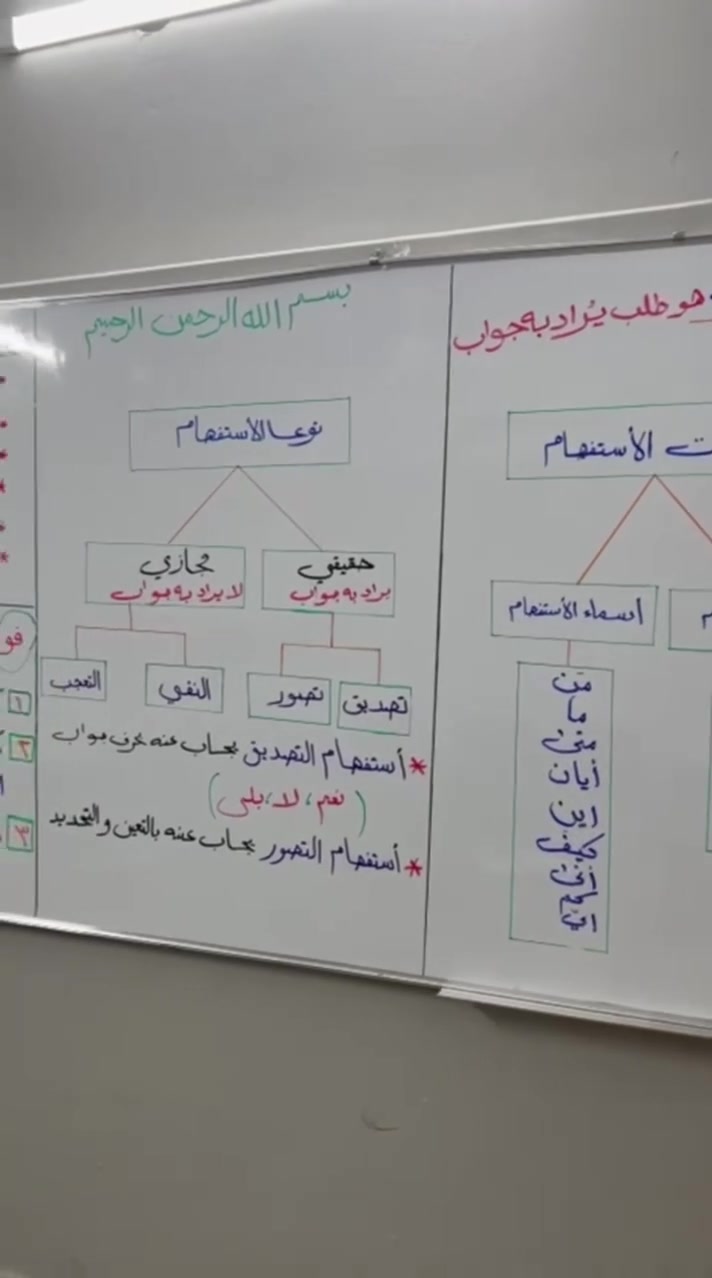 هو طلب يُراد به جواب
ت الأستفهام
أسماء الأستفهام
م
مَن
ما
متى
أيان
اين
كيف
أنى
كم
اي
بسم الله الرحمن الرحيم
نوعا الأستفهام
حقيقي
يراد به جواب
مجازي
لا يراد به جواب
تصديق
تصور
النفي
التعجب
* أستفهام التصديق يجاب عنه بحرف جواب
(نعم، لا، بلى)
* أستفهام التصور يجاب عنه بالتعين والتحديد
فو
١
٢
٣